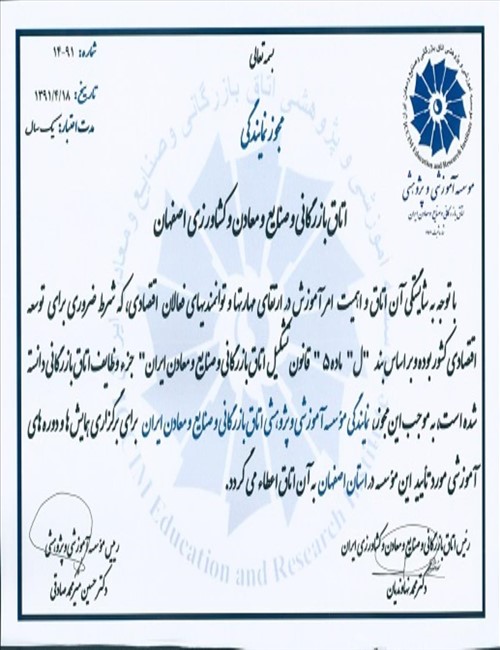 بسمه تعالی
شماره: ۱۴-۹۱
تاریخ: ۱۳۹۱/۴/۱۸
مدت اعتبار: یک سال
ICCIM Education and Research Institute
موسسه آموزشی و پژوهشی
اتاق بازرگانی و صنایع و معادن ایران
مجوز نمایندگی
اتاق بازرگانی و صنایع و معادن و کشاورزی اصفهان
با توجه به شایستگی آن اتاق و اهمیت امر آموزش در ارتقای مهارتها و توانمندیهای فعالان اقتصادی، که شرط ضروری برای توسعه
اقتصادی کشور بوده و بر اساس بند "ل" ماده ۵ "قانون تشکیل اتاق بازرگانی و صنایع و معادن ایران" جزء وظایف اتاق بازرگانی دانسته
شده است، به موجب این مجوز نمایندگی مؤسسه آموزشی و پژوهشی اتاق بازرگانی و صنایع و معادن ایران برای برگزاری همایش ها و دوره های
آموزشی مورد تأیید این مؤسسه در استان اصفهان به آن اتاق اعطاء می گردد.
رئیس اتاق بازرگانی و صنایع و معادن و کشاورزی ایران
دکتر محمد نهاوندیان
رئیس مؤسسه آموزشی و پژوهشی
دکتر حسین میرمحمد صادقی